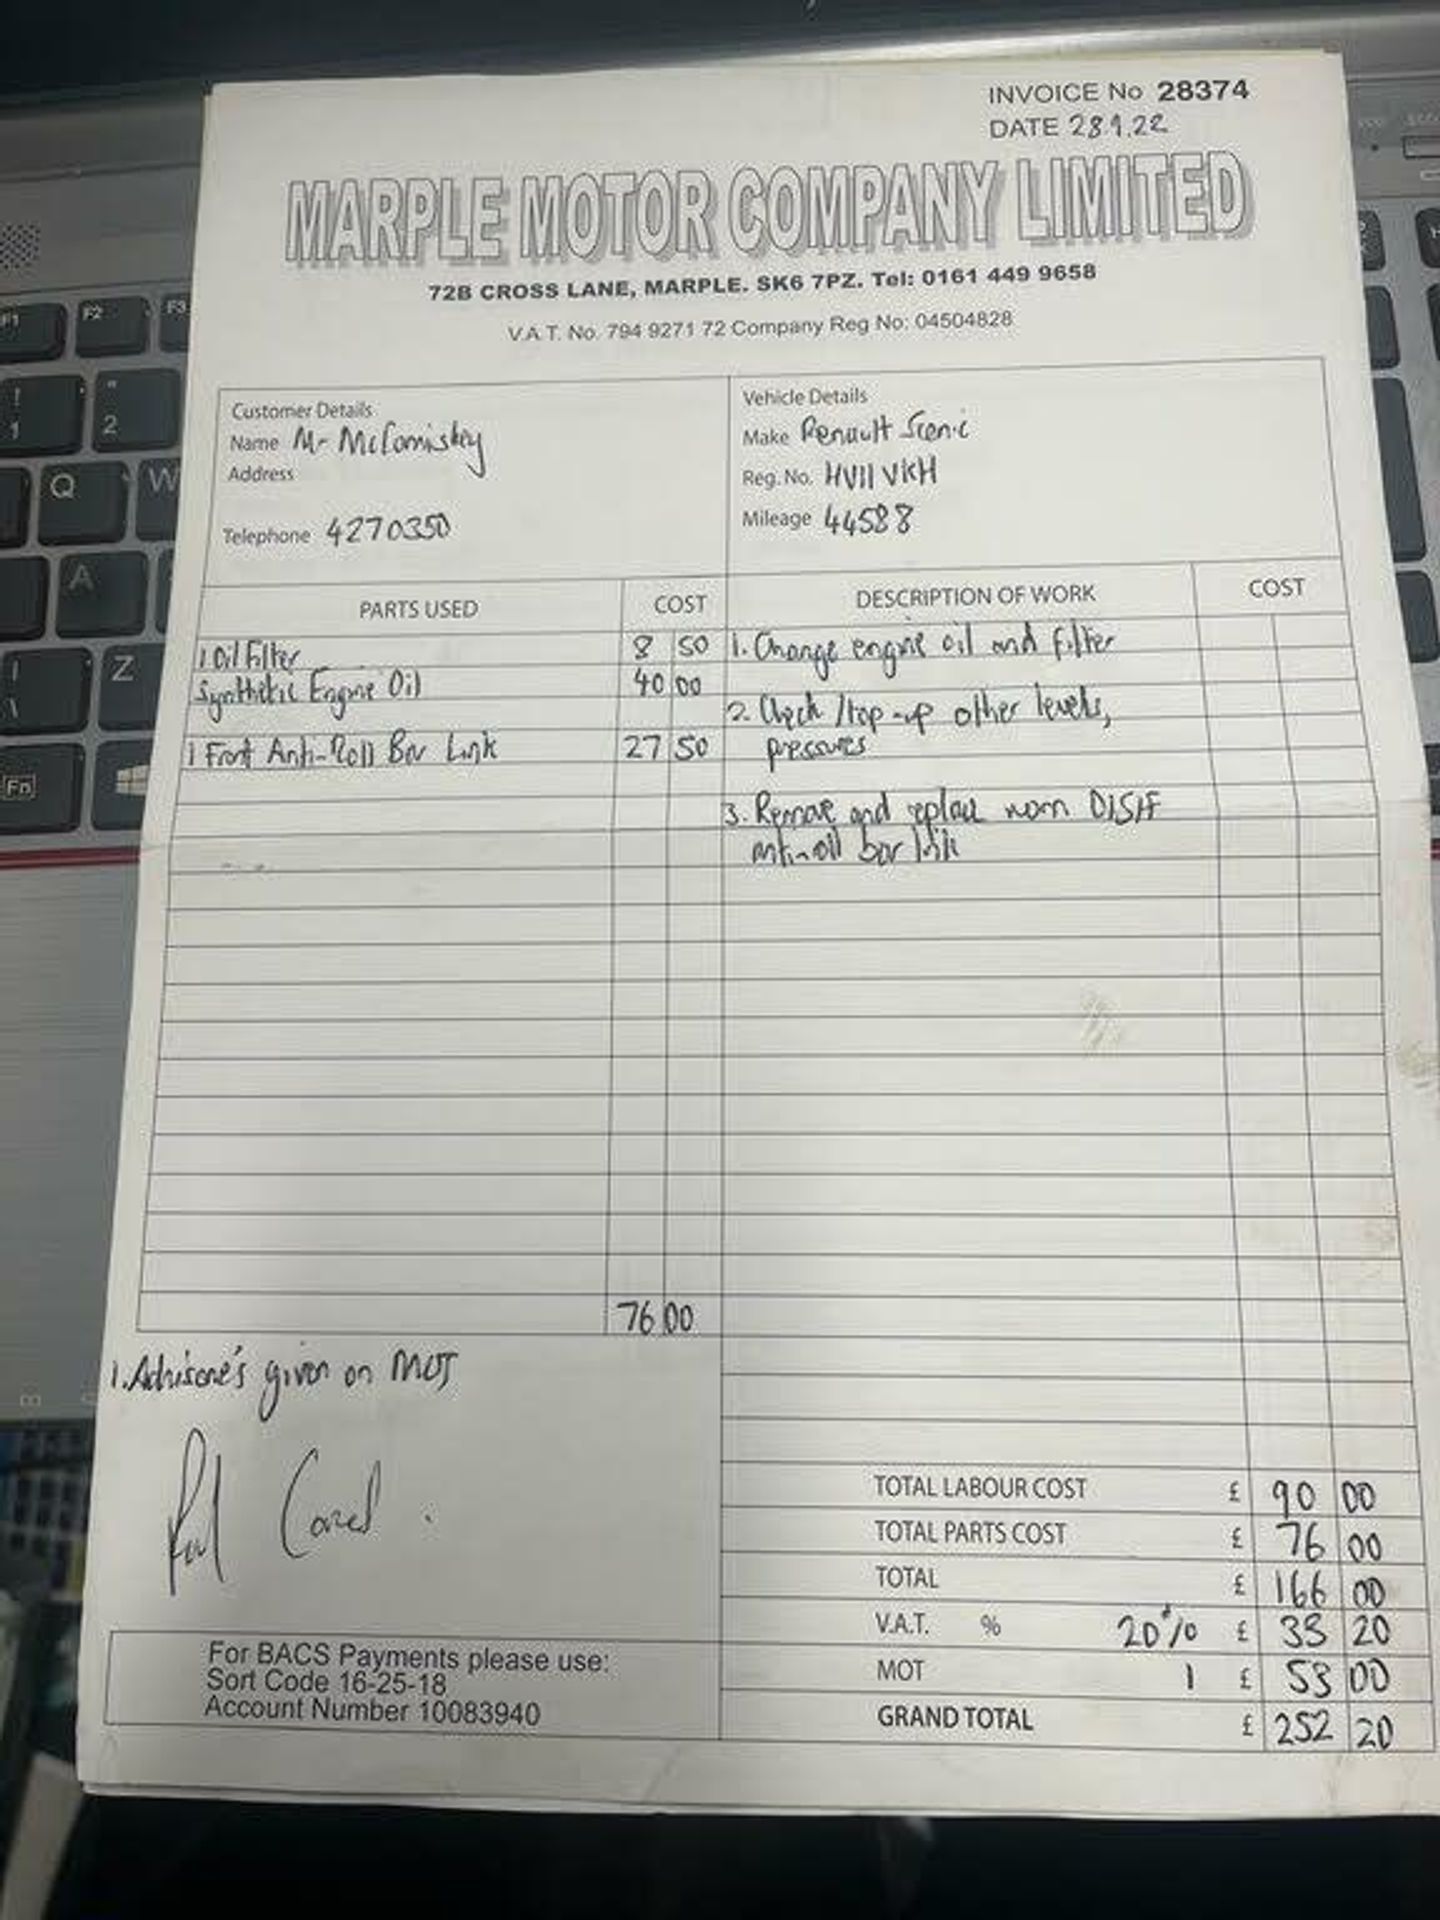 INVOICE No 28374
DATE 28.9.22
MARPLE MOTOR COMPANY LIMITED
72B CROSS LANE, MARPLE. SK6 7PZ. Tel: 0161 449 9658
V.A.T. No. 794 9271 72 Company Reg No: 04504828
Customer Details
Name Mr McComiskey
Address
Telephone 4270350
Vehicle Details
Make Renault Scenic
Reg. No. HV11 VKH
Mileage 44588
PARTS USED COST DESCRIPTION OF WORK COST
1 Oil Filter 8 50
Synthetic Engine Oil 40 00
1 Front Anti-Roll Bar Link 27 50
1. Change engine oil and filter
2. Check/top-up other levels,
pressures
3. Remove and replace worn O/S/F
anti-roll bar link
76 00
1. given on MOT
TOTAL LABOUR COST £ 90 00
TOTAL PARTS COST £ 76 00
TOTAL £ 166 00
V.A.T. % 20% £ 33 20
MOT 1 £ 53 00
GRAND TOTAL £ 252 20
For BACS Payments please use:
Sort Code 16-25-18
Account Number 10083940
F1
F2
F3
!
1
"
2
Q
W
A
\
Z
Fn